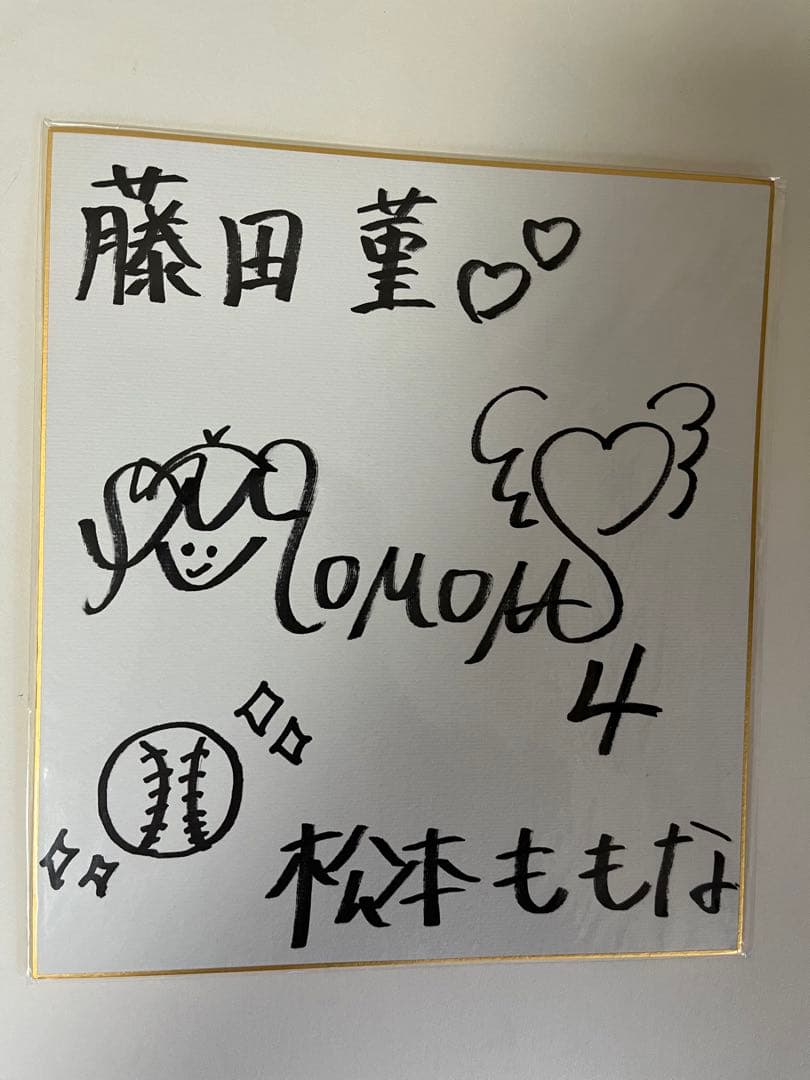 藤田菫
MOMONA
4
松本ももな